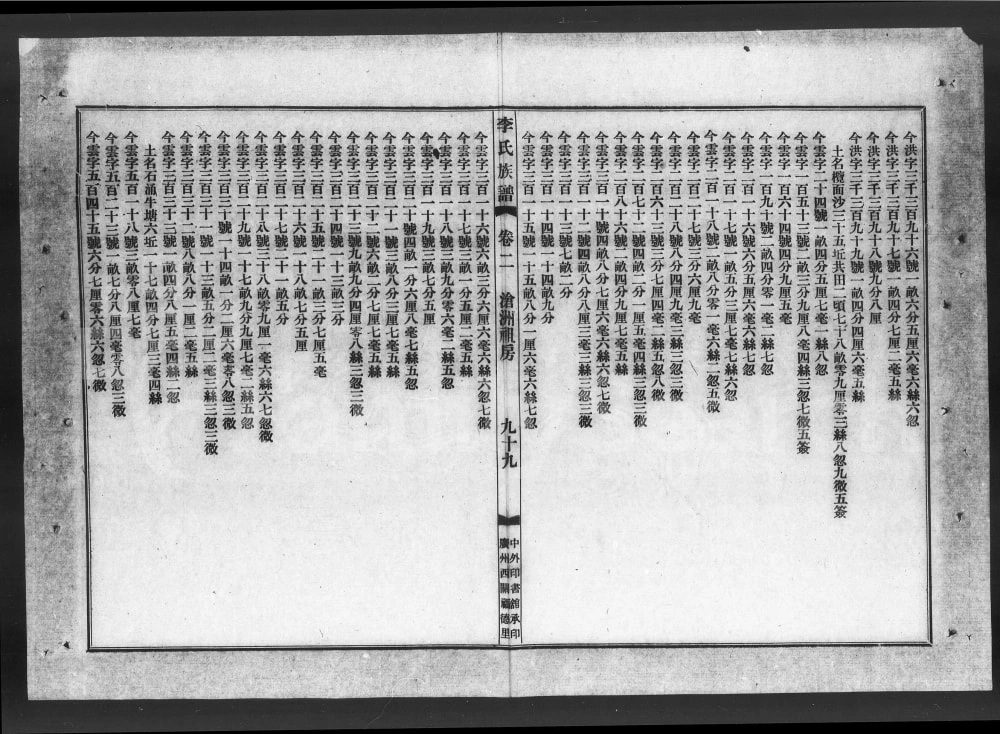 今洪字三千三百九十六號一畝六分五厘六毫六絲六忽
今洪字三千三百九十七號一畝二分四毫五絲
今洪字三千三百九十八號九分八厘
今洪字三千三百九十九號一畝七分四厘六毫五絲
土名欖面沙三十五坵共田二頃七十八畝零九厘零三絲八忽九微五簽
今雲字二十四號一畝四分五厘一毫一絲八忽
今雲字一百五十三號二畝三分五厘四毫三絲三忽七微五簽
今雲字一百六十四號四分九厘五毫
今雲字一百九十號二畝四分零一毫二絲七忽
今雲字一百一十六號六分五厘六毫六絲六忽
今雲字一百一十七號一畝五分二厘七毫六忽
今雲字一百一十八號一畝八分零一毫六絲二忽五微
今雲字二百七十號八分四厘九毫
今雲字二百七十一號八分四厘九毫三絲三忽三微
今雲字一百六十三號三分七厘二毫五絲八忽八微
今雲字一百七十二號四畝一分三厘四毫三絲三忽三微
今雲字二百八十六號四分九厘一毫五絲
今雲字三百一十號四畝八分七厘六毫六絲六忽七微
今雲字三百一十二號四畝八分八厘三毫三絲三忽三微
今雲字三百一十三號七畝二分
今雲字三百一十四號十四畝九分
今雲字三百一十五號一十五畝八分一厘六毫六絲七忽
李氏族譜
卷二
滄洲祖房
九十九
中外印書館承印
廣州西關福德里
今雲字三百一十六號六畝三分六厘六毫六絲六忽七微
今雲字三百一十七號三畝一分五厘二毫五絲
今雲字三百一十八號三畝九分零六毫二絲五忽
今雲字三百一十九號三畝七分五厘
今雲字三百二十號四畝一分六厘八毫七絲五忽
今雲字三百二十一號三畝八分三厘七毫五絲
今雲字三百二十二號六畝二分七厘一毫五絲
今雲字三百二十三號九畝九分四厘零八絲三忽三微
今雲字三百二十四號一十三畝三分
今雲字三百二十五號二十一畝二分七厘五毫
今雲字三百二十六號一十八畝七分五厘
今雲字三百二十七號二十一畝五分
今雲字三百二十八號三十八畝零九厘一毫六絲六七忽微
今雲字三百二十九號一十七畝九分九厘七毫二絲五忽
今雲字三百三十號一十四畝一分二厘六毫零八忽三微
今雲字三百三十一號一十三畝五分二厘二毫三絲三忽三微
今雲字三百三十二號八畝八分一厘一毫五絲
今雲字三百三十三號一畝四分八厘五毫四絲二忽
土名石涌牛塘六坵一十七畝四分七厘三毫四絲
今雲字五百一十八號三畝零八厘七毫
今雲字五百二十三號一畝七分八厘四毫零八忽三微
今雲字五百四十五號六分七厘零六絲六忽七微